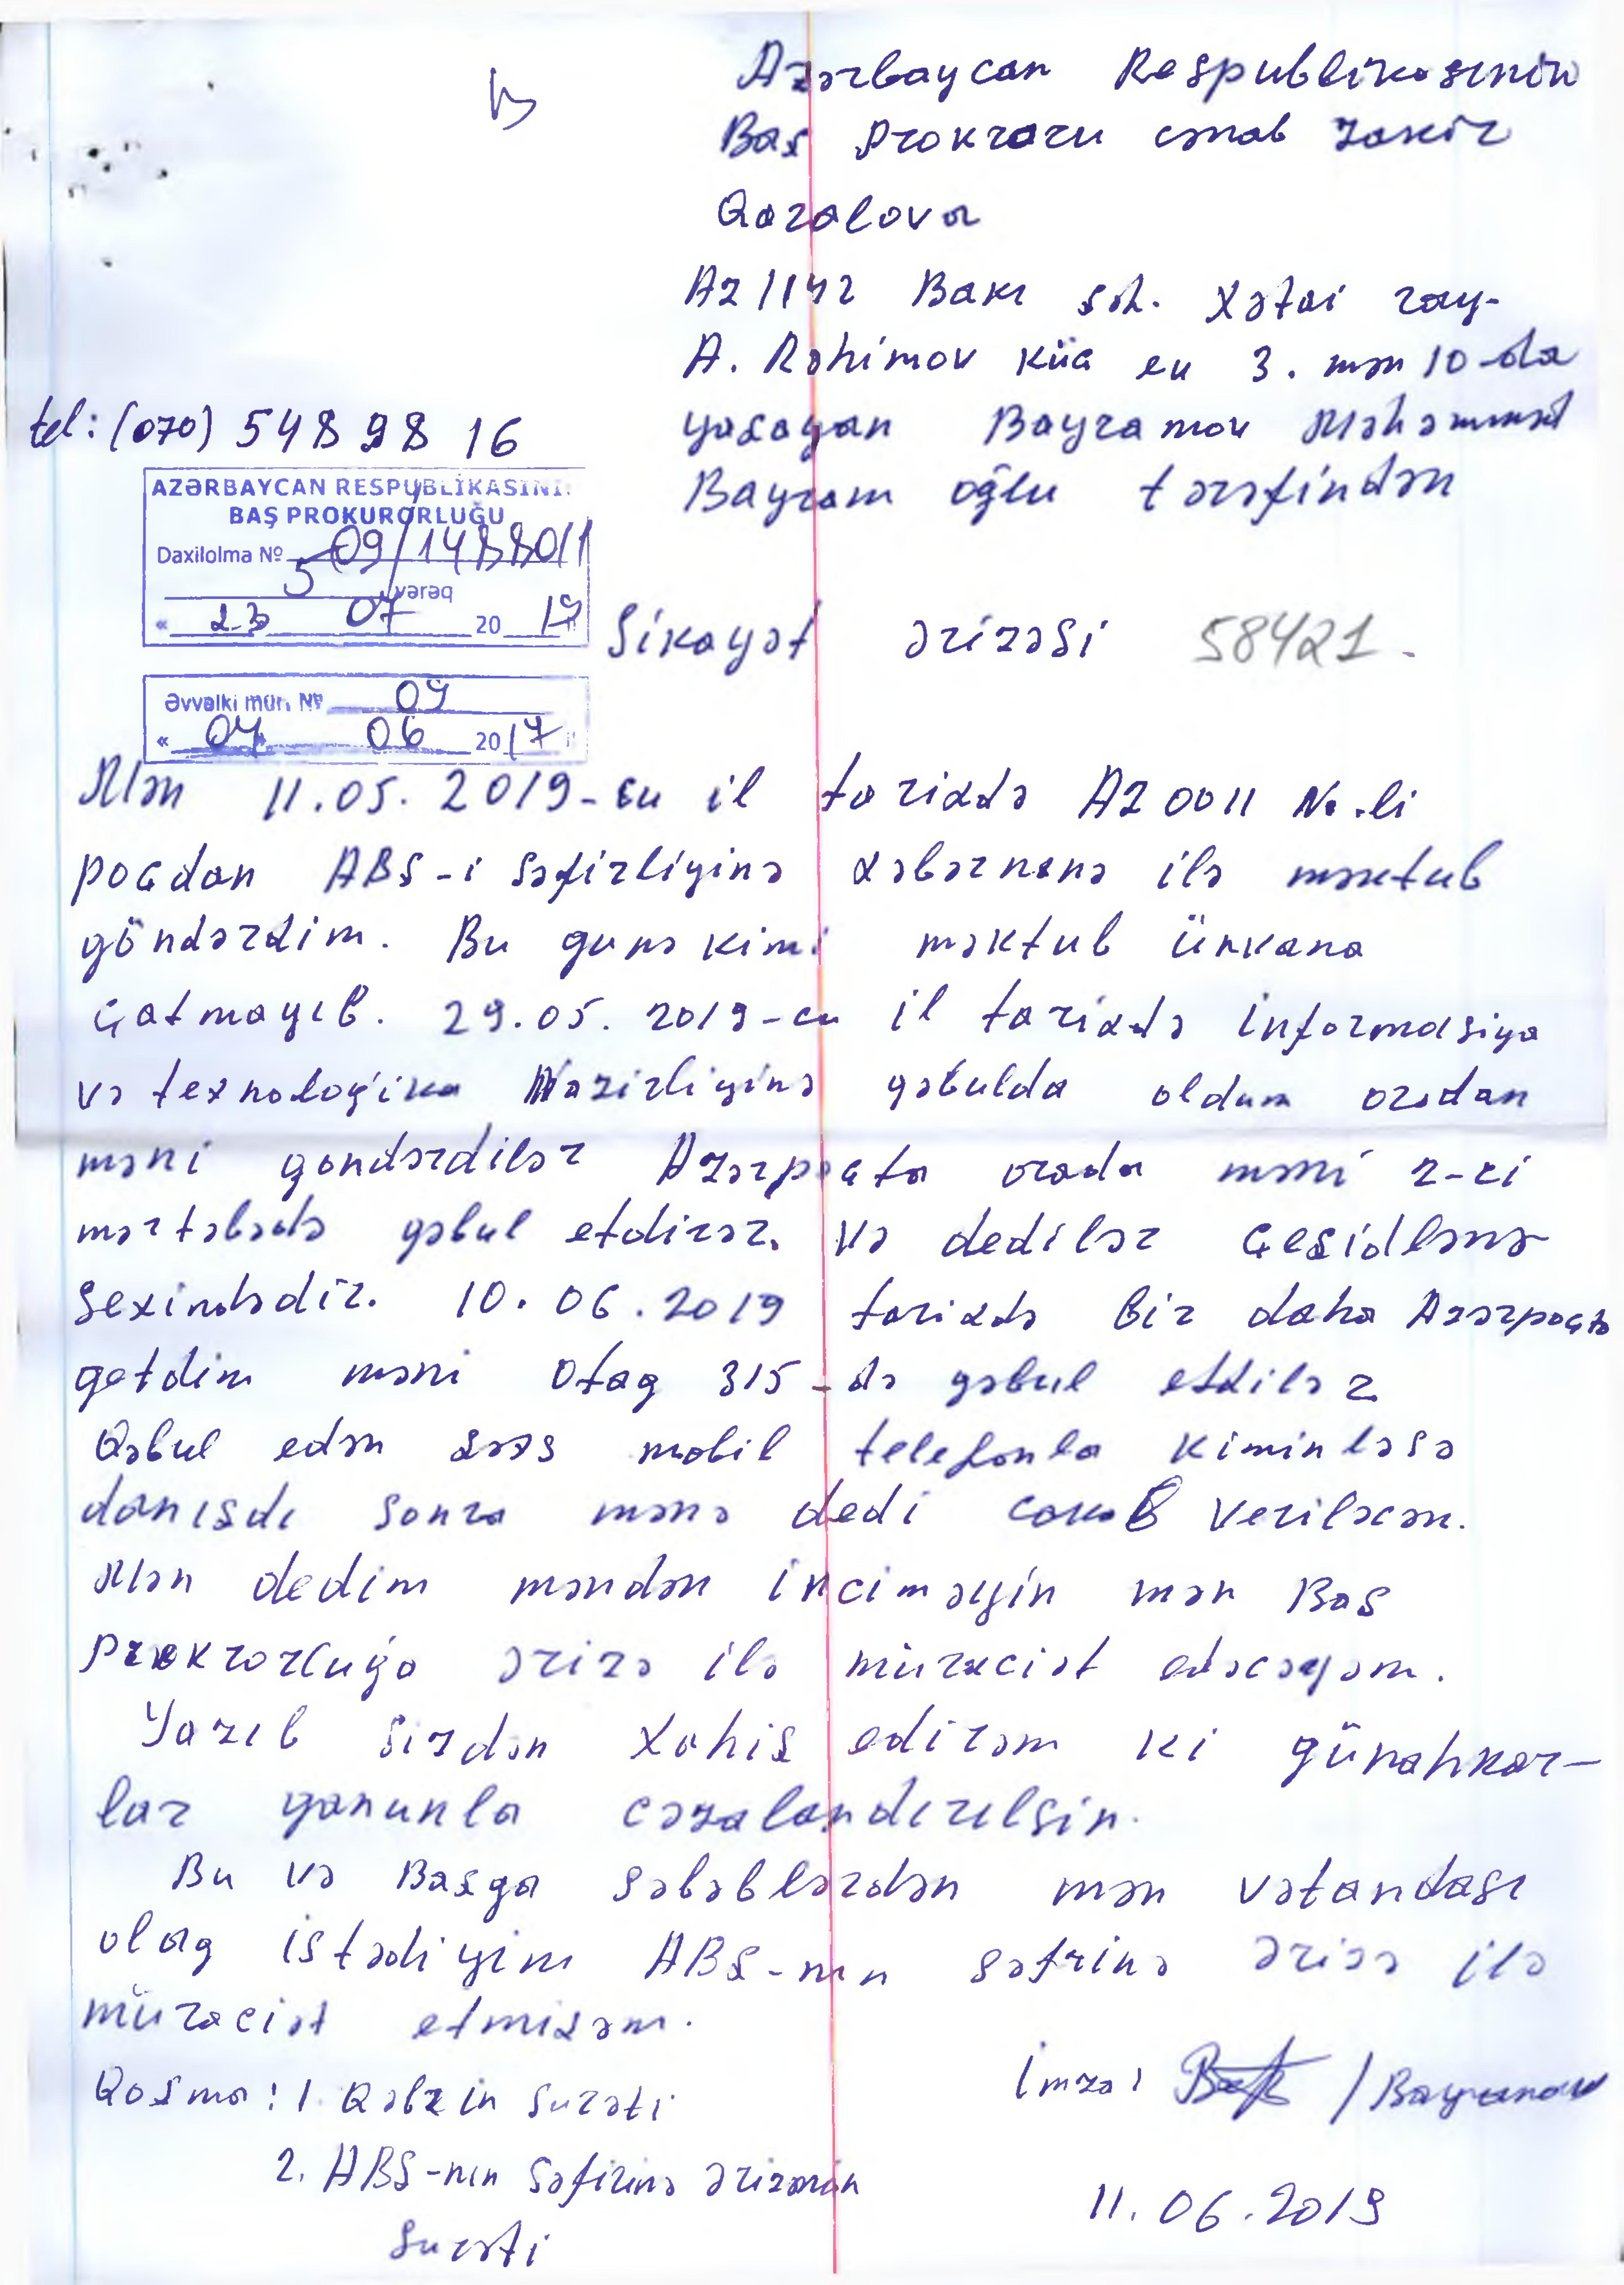 Azərbaycan Respublikasının
Baş Prokraru cənab Zakir
Qaralova
AZ1142 Bakı şəh. Xətai ray-
A. Rəhimov küç ev 3. mən 10-da
yaşayan Bayramov Məhəmməd
Bayram oğlu tərəfindən
tel: (070) 548 98 16
AZƏRBAYCAN RESPUBLİKASINI
BAŞ PROKURORLUĞU
Daxilolma № 09/14880/1
5 vərəq
« 23 07 20 19
Əvvəlki mür. №
« 07 06 2017
Şikayət ərizəsi 58421
Mən 11.05.2019-cu il tarixdə AZ0011 No-li
poçdan ABŞ-ı səfirliyinə xəbərnənə ilə məktub
göndərdim. Bu gunə kimi məktub ünvana
çatmayıb. 29.05.2019-cu il tarixdə informasiya
və texnologika Nazirliyinə qəbulda oldum oradan
məni gondərdilər Azərpoçta orada məni 2-ci
mərtəbədə qəbul etdirər. və dedilər çeşidləmə
sexindədir. 10.06.2019 tarixdə bir daha Azərpoçta
getdim məni otaq 315-də qəbul etdilər
Qəbul edən şəxs mobil telefonla kiminləsə
danışdı sonra mənə dedi cavab veriləcən.
Mən dedim məndən inciməyin mən Baş
prokrorluğa ərizə ilə müraciət edəcəyəm.
Yazıb sizdən xahiş edirəm ki günahkar-
lar qanunla cəzalandırılsın.
Bu və Başqa səbəblərdən mən vətandaşı
olaq istədiyim ABŞ-nın səfrinə ərizə ilə
müraciət etmişəm.
Qoşma: 1. Qəbzin surəti
İmza: / Bayramov
2. ABŞ-nın səfirinə ərizənin
surəti
11.06.2019